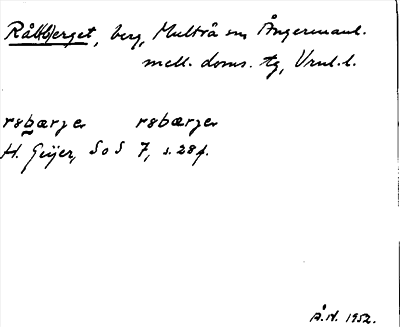 Rå(l)berget, berg, Multrå sn, Ångermanl.
mell. doms. tg, Vrnl. l.
røbærjer røbærjer
H. Geijer, SoS 7, s. 28f.
Å.N. 1952.